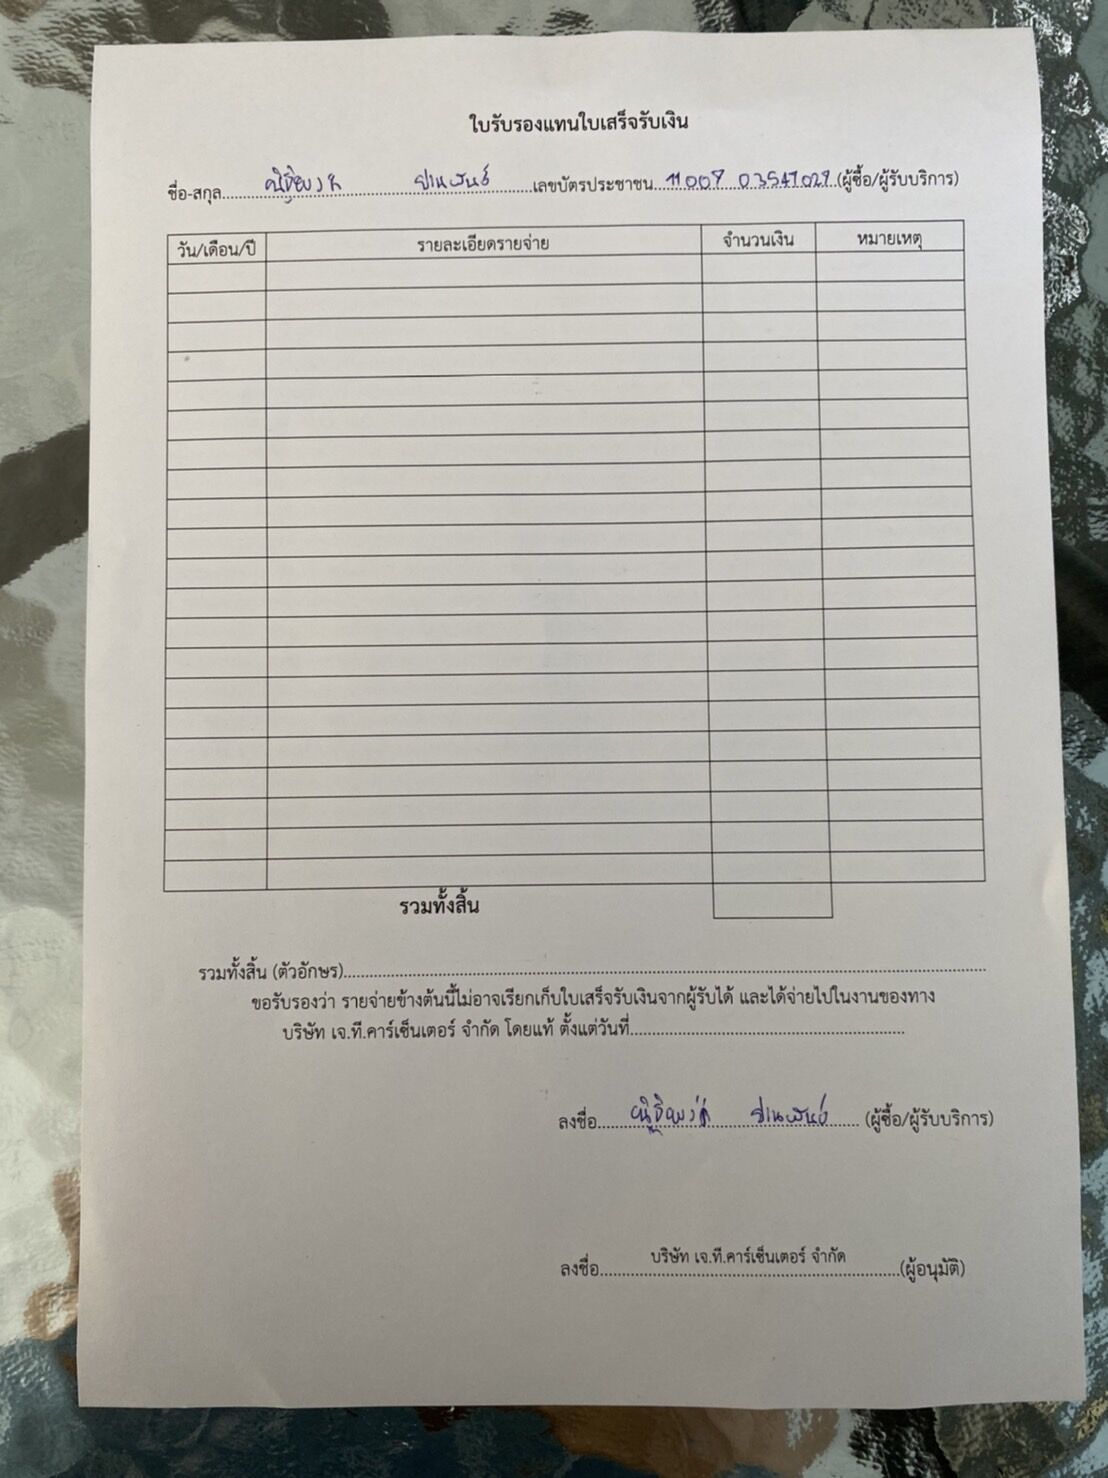 ใบรับรองแทนใบเสร็จรับเงิน
ชื่อ-สกุล.......... เลขบัตรประชาชน.......... (ผู้ซื้อ/ผู้รับบริการ)
วัน/เดือน/ปี รายละเอียดรายจ่าย จำนวนเงิน หมายเหตุ
รวมทั้งสิ้น
รวมทั้งสิ้น (ตัวอักษร)..........
ขอรับรองว่า รายจ่ายข้างต้นนี้ไม่อาจเรียกเก็บใบเสร็จรับเงินจากผู้รับได้ และได้จ่ายไปในงานของทาง
บริษัท เจ.ที.คาร์เซ็นเตอร์ จำกัด โดยแท้ ตั้งแต่วันที่..........
ลงชื่อ.......... (ผู้ซื้อ/ผู้รับบริการ)
บริษัท เจ.ที.คาร์เซ็นเตอร์ จำกัด
ลงชื่อ..........(ผู้อนุมัติ)